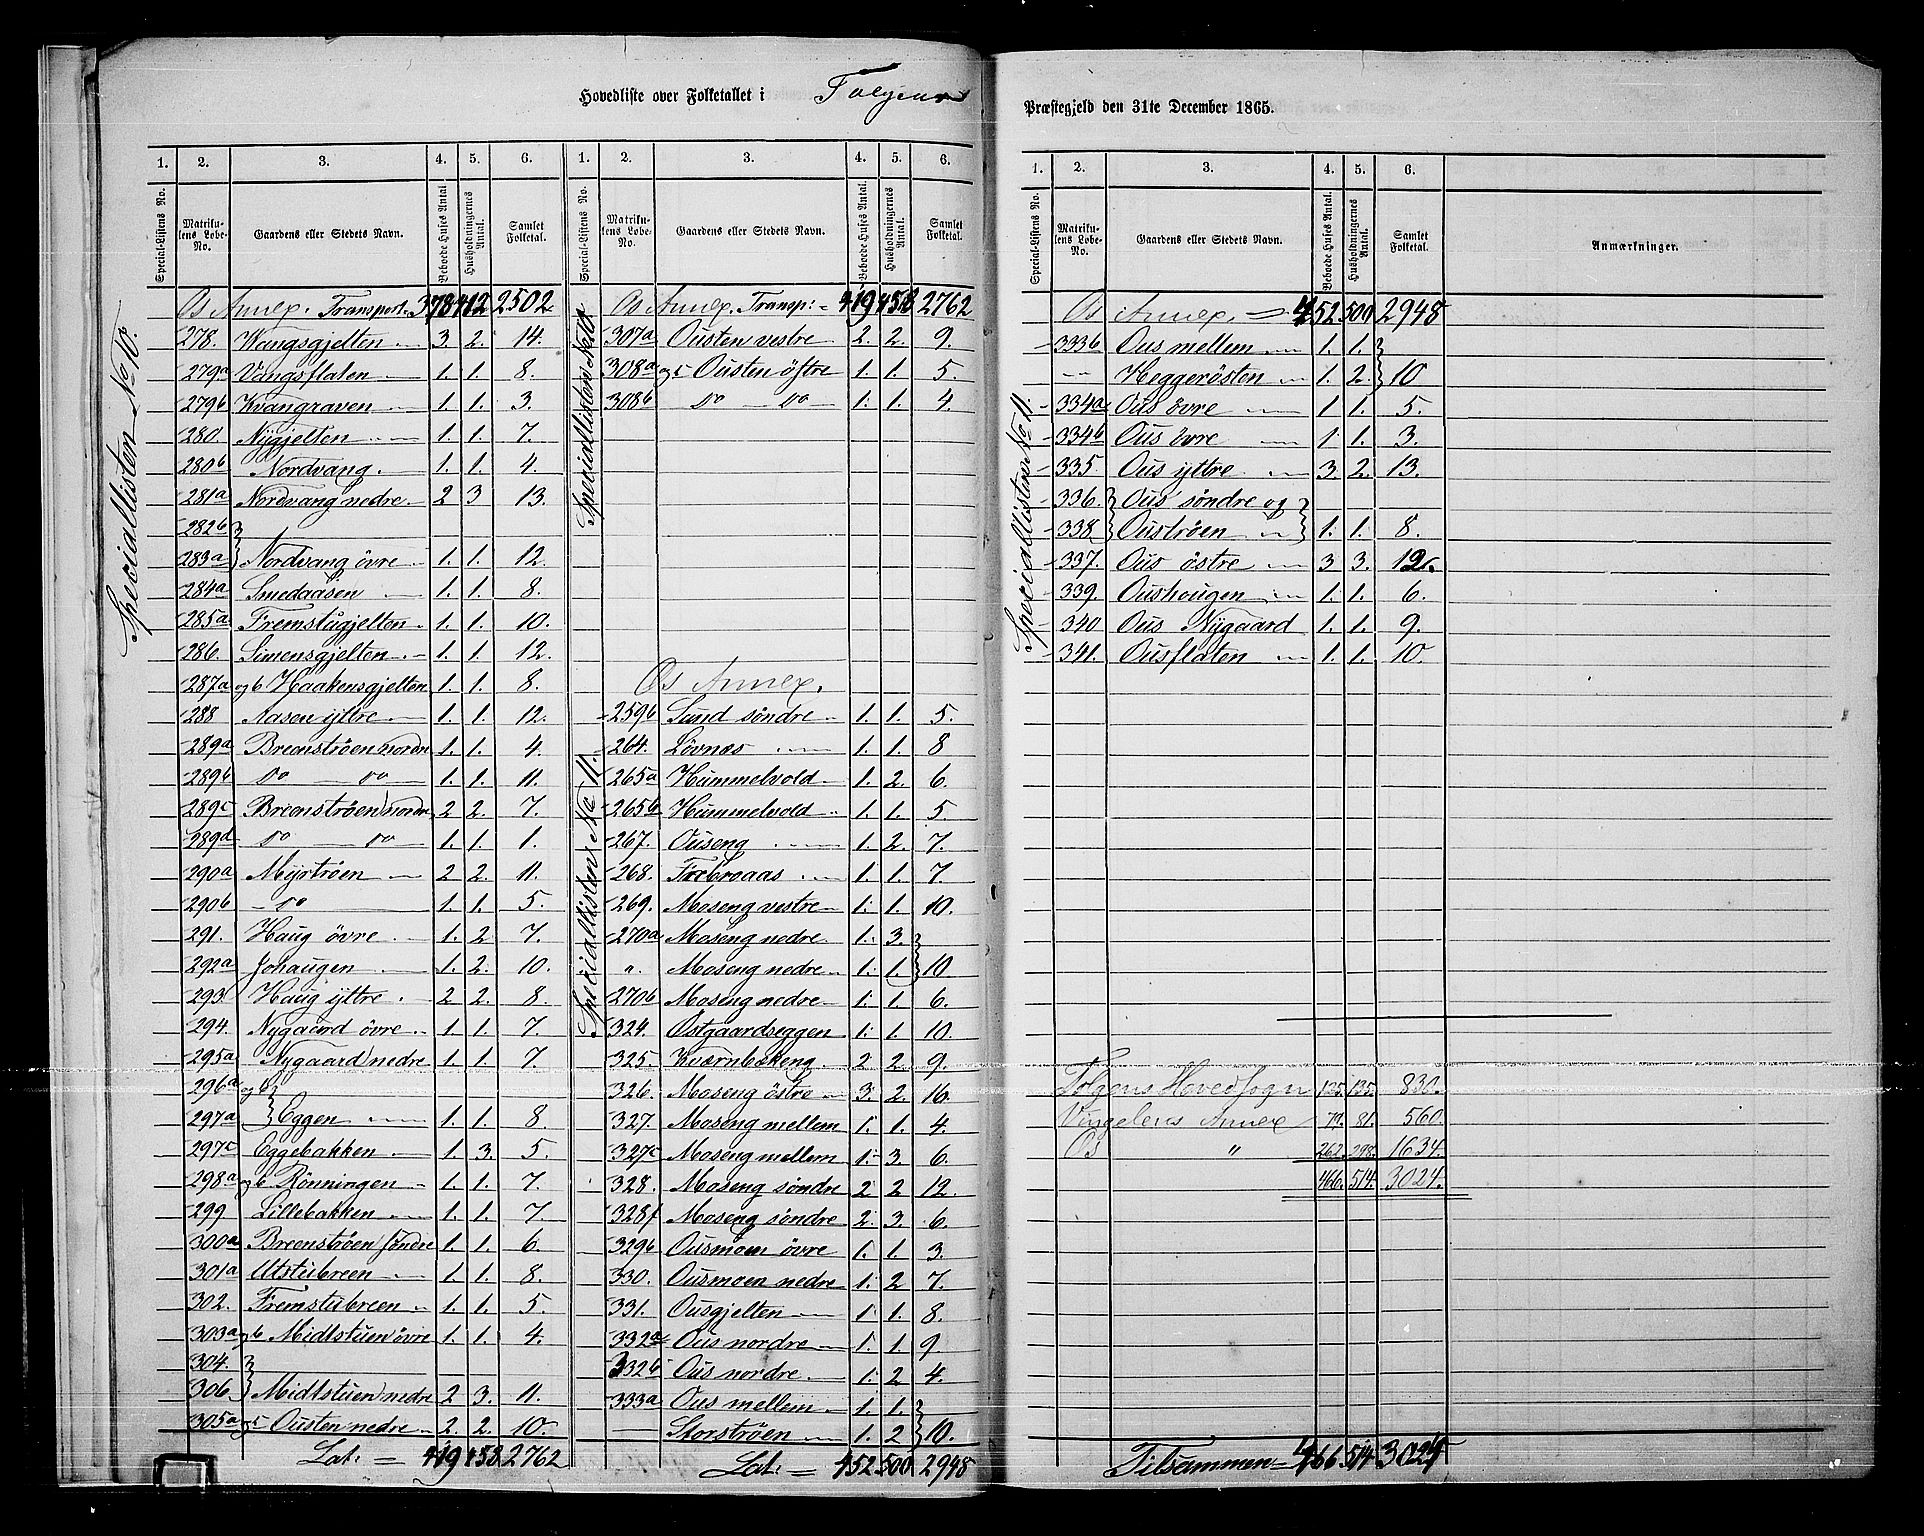 Hovedliste over Folketallet i Tolgens
Præstegjeld den 31te December 1865.
1. 2. 3. 4. 5. 6. 1. 2. 3. 4. 5. 6.
Special-Listens No. Matrikulens Lobe-No. Gaardens eller Stedets Navn. Beboede Huses Antal Husholdningernes Antal. Samlet Folketal. Special-Listens No. Matrikulens Lobe-No. Gaardens eller Stedets Navn. Beboede Huses Antal. Husholdningernes Antal. Samlet Folketal.
Speciallisten No 10.
Os Annex. Transport. 378 412 2502
278. Vangsgjelten 3. 2. 14.
279a Vangsflaten 1. 1. 8.
279b Kvangraven 1. 1. 3.
280. Nygjelten 1. 1. 7.
280b Nordvang. 1. 1. 4.
281a Nordvang nedre. 2 3 13.
282b
283a Nordvang övre 1. 1. 12.
284a Smedaasen 1. 1. 8.
285a Fremstugjelten 1. 1. 10.
286. Simensgjelten 1. 1. 12.
287a og b Haakensgjelten 1. 1. 8.
288 Aasen yttre 1. 1. 12.
289a Breonströen nordre 1. 1. 4.
289b do do 1. 1. 11.
289c Breonströen nordre 2 2. 7.
289d do do 1. 1. 1.
290a Myrtröen 2 2. 11.
290b do 1. 1. 5.
291. Haug övre 1. 2 7.
292a Johaugen 1. 2. 10.
293. Haug yttre 2 2. 8.
294. Nygaard övre 1. 1. 7.
295a Nygaard nedre 1. 1. 7.
296a og b
297a Eggen 1. 1. 8.
297c Eggebakken 1. 3. 5.
298a og b Rönningen 1. 1. 7.
299 Lillebakken 1. 1. 7.
300a Breonströen söndre 1. 1. 6.
301a Utstubreen 1. 1. 8.
302. Fremstubreen 1. 1. 5.
303a og b Midtstuen övre 1. 1. 4.
304.
306. Midtstuen nedre 2 3. 11.
305a og c Ousten nedre 2. 2. 10.
Lat. = 419 458 2762
Speciallisten No 10
Os Annex. Transp: 419 458 2762
307a Ousten vestre 2. 2. 9.
308a og c Ousten östre 1. 1. 5.
308b do do 1. 1. 4.
Os Annex.
Speciallisten No 11.
259b Sund söndre 1. 1. 5.
264. Lövnæs 1. 1. 8
265a Hummelvold 1. 2. 6.
265b Hummelvold 1. 1. 5
267. Ouseng 1. 2. 7.
268. Frebroaas 1. 1. 7
269. Moseng vestre 1. 1. 10.
270a Moseng nedre 1. 3.
" Moseng nedre 1. 1. 10
270b Moseng nedre 1. 1. 6.
324. Östgaardseggen 1. 1. 10.
325. Kværnbækeng 2 2. 9.
326. Moseng östre 3. 2. 16.
327. Moseng mellem 1. 1. 4.
327c Moseng mellem 1. 3. 6.
328. Moseng söndre 2 2 12.
328f Moseng söndre 2. 3. 6.
329b Ousmoen övre 1. 1. 3.
330. Ousmoen nedre 1. 2 7.
331. Ousgjelten 1 1. 8.
332a Ous nordre 1. 1 9.
332b Ous nordre 1. 2 4.
333a Ous mellem 1. 1.
Storströen 1. 2 10.
Lat. = 452 500 2948
1. 2. 3. 4. 5. 6.
Special-Listens No. Matrikulens Lobe-No. Gaardens eller Stedets Navn. Beboede Huses Antal. Husholdningernes Antal. Samlet Folketal. Anmærkninger.
Speciallisten No 11.
Os Annex. = 452 500 2948
333b Ous mellem 1. 1.
Heggerösten 1. 2. 10
334a Ous övre 1 1. 5.
334b Ous övre 1 1. 3.
335. Ous yttre 3. 2. 13.
336. Ous söndre og
338 Ouströen 1. 1. 8.
337. Ous östre 3 3. 12.
339. Oushaugen 1. 1. 6.
340 Ous Nygaard 1. 1. 9.
341. Ousflaten 1. 1. 10.
Tolgens Hovedsogn 125. 135. 830.
Vingelens Annex 79. 81. 560.
Os " 262. 298. 1634.
466. 514. 3024.
Tilsammen = 466 514 3024